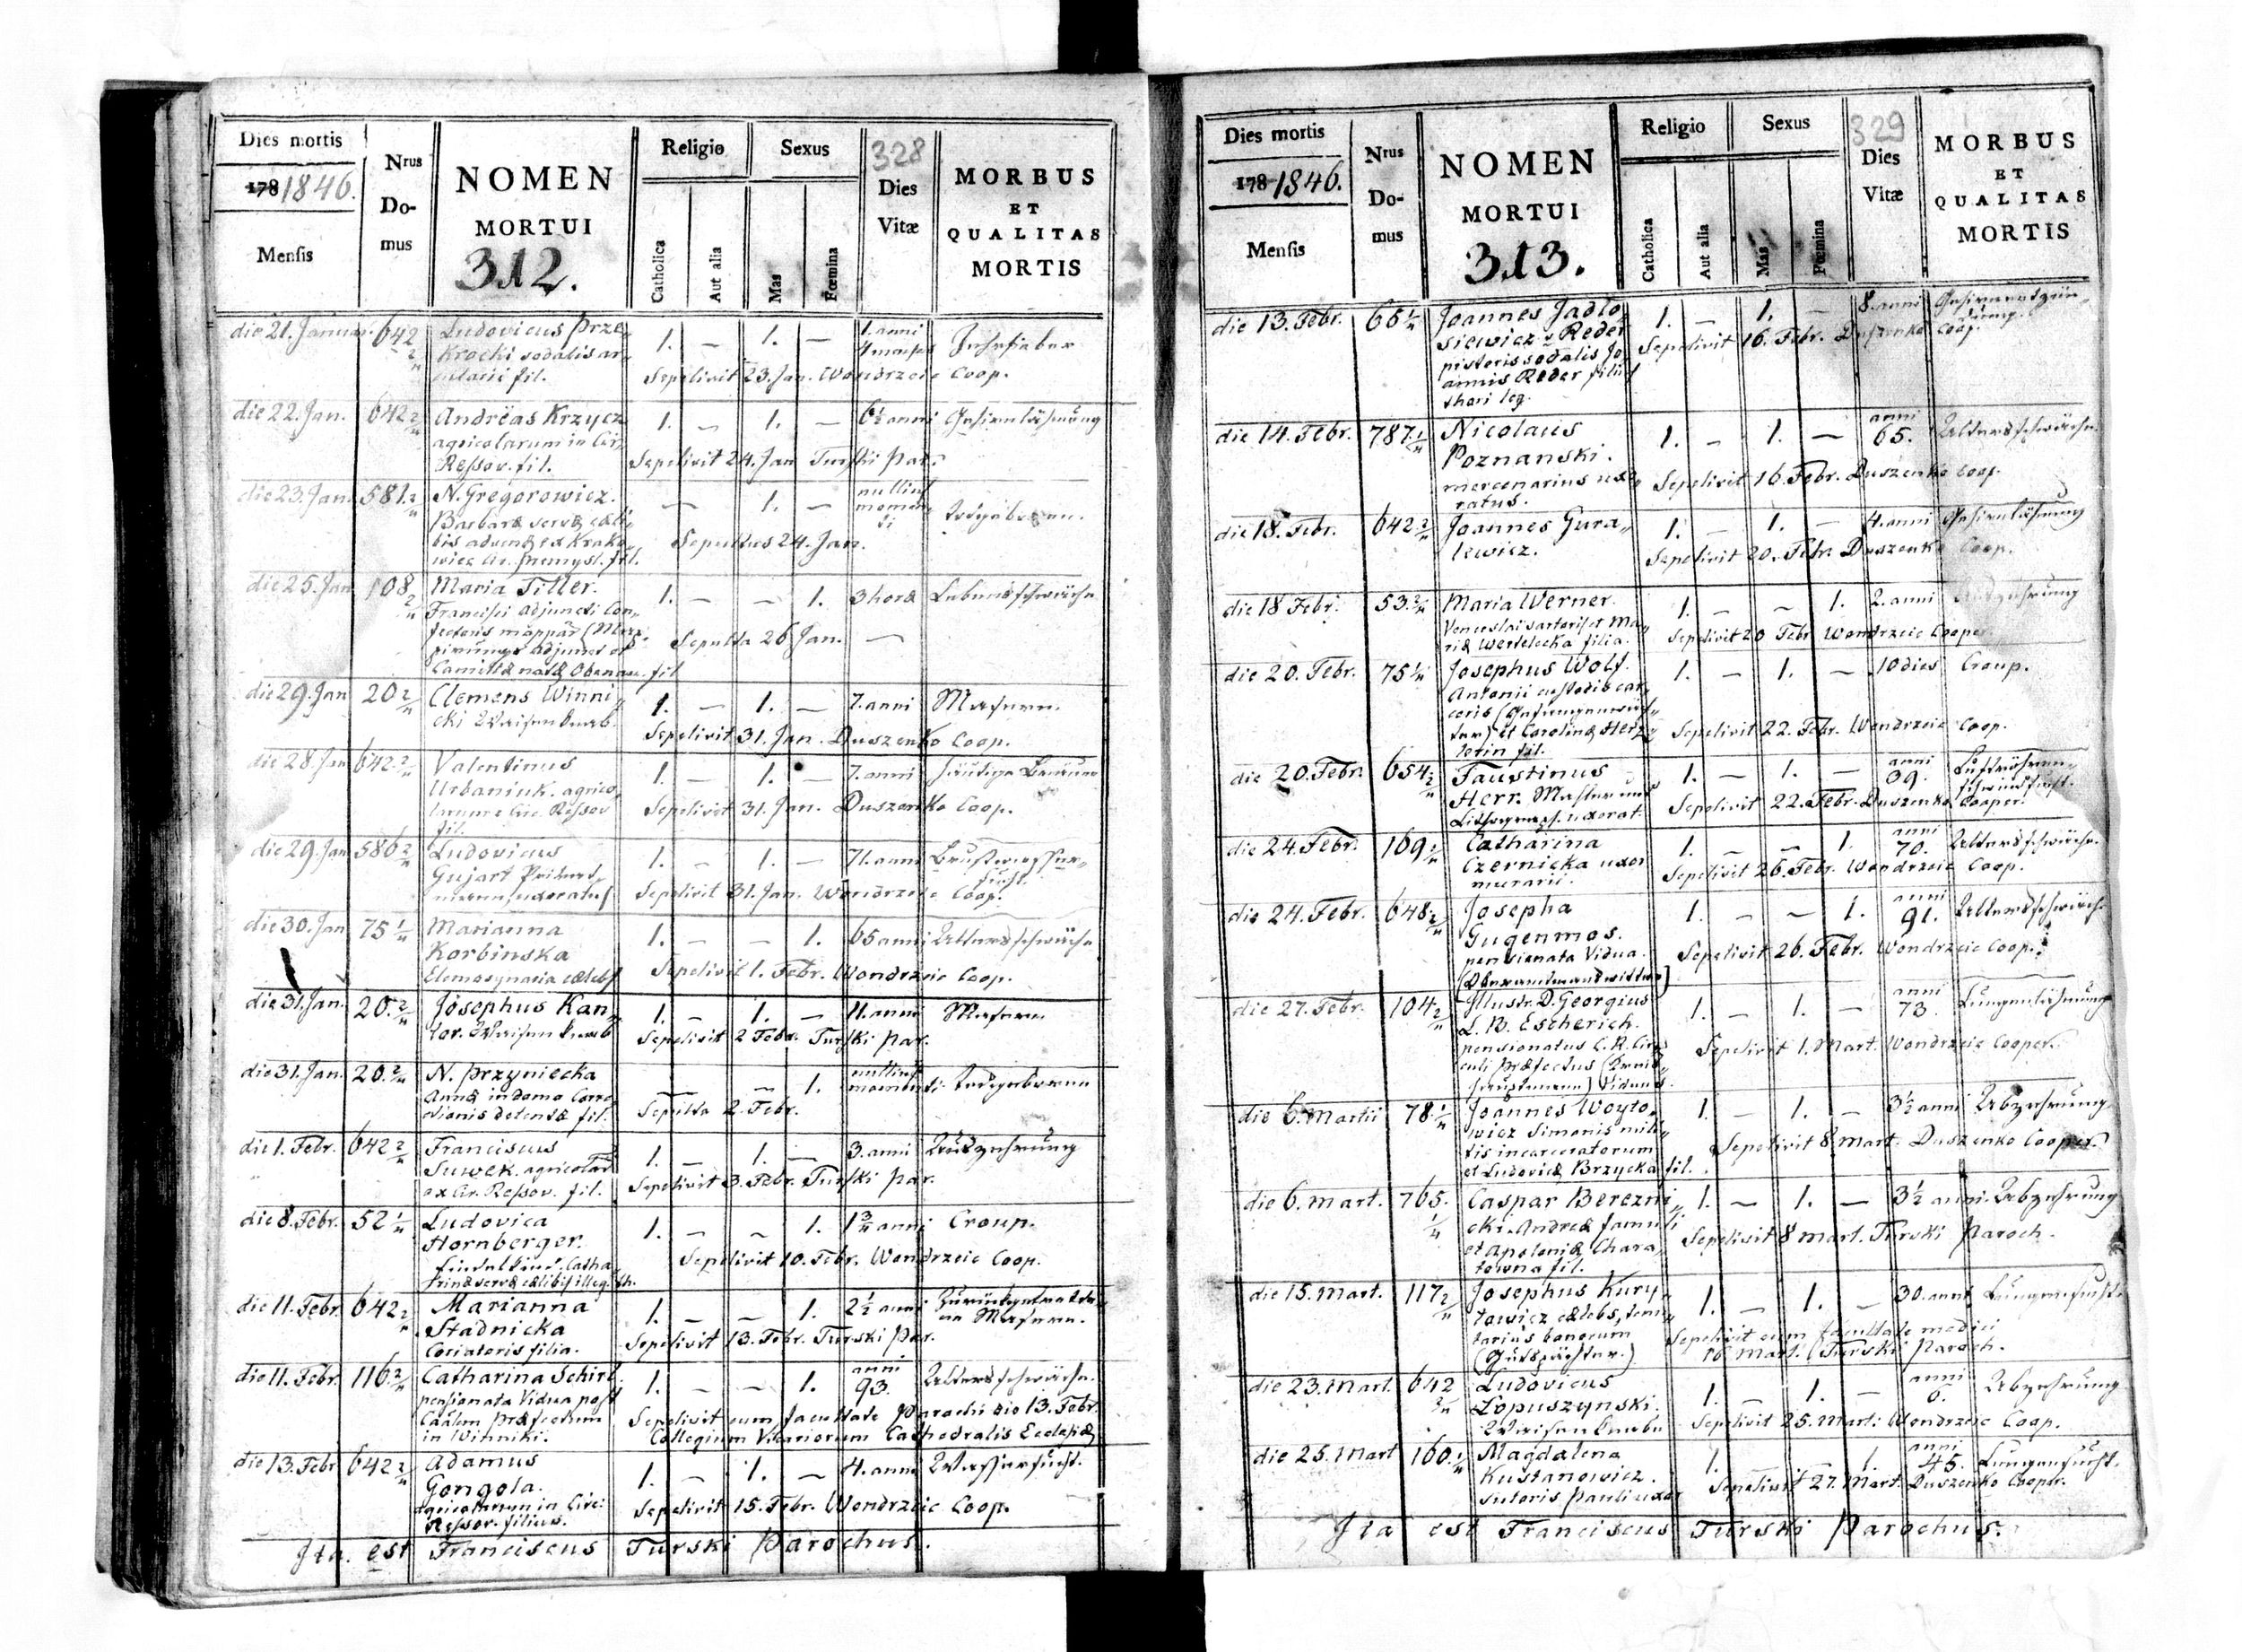 Dies mortis
1781846.
Mensis
Nrus
Do-
mus
NOMEN
MORTUI
312.
Religio
Catholica
Aut alia
Sexus
Mas
Fœmina
328
Dies
Vitæ
MORBUS
ET
QUALITAS
MORTIS
die 21. Januar. 642 2/ Ludovicus Prze„ 1. — 1. — 1. anni
krocki sodalis ar„ 4 menses
cularii fil. Sepelivit 23. Jan. Wondrzeic Coop.
die 22. Jan. 642 2/ Andreas Krzycz 1. — 1. — 6½ anni Gehirnlähmung
agricolarum in Cir.
Ressov. fil. Sepelivit 24. Jan Turski par.
die 23. Jan. 581. 2/ N. Gregorowicz. — 1. — nullius
Barbaræ servæ cæli„ momen„
bis advenæ ex Krako„ ti
wiec Cir. Przemysl. fil. Sepultus 24. Jan.
die 25. Jan 108 2/ Maria Titler. 1. — — 1. 3 horæ Lebensschwäche
Francisci adjuncti Con„
et
Camillæ natæ Obenau. fil Sepulta 26 Jan. —
die 29. Jan 20 2/ Clemens Winni„ 1. — 1. — 7. anni Masern
cki Waisenknab. Sepelivit 31. Jan. Duszenko Coop.
die 28. Jan 642. 2/ Valentinus 1. — 1. — 7. anni häutige Bräune
Urbaniuk. agrico„
larum e Cir. Ressov
fil. Sepelivit 31. Jan. Duszenko Coop.
die 29. Jan 586 2/ Ludovicus 1. — 1. — 71. anni Brustwasser„
Gujart sucht.
uxoratus Sepelivit 31. Jan. Wondrzeic Coop.
die 30. Jan 75 1/ Marianna 1. — — 1. 65 anni Altersschwäche
Korbinska
Elemosynaria cælebs Sepelivit 1. Febr. Wondrzeic Coop.
die 31. Jan. 20. 2/ Josephus Kan„ 1. — 1. — 11. anni Masern
tor. Waisenknab Sepelivit 2 Febr. Turski par.
die 31. Jan. 20. 2/ N. Przyniecka — — 1. nullius momenti. todgeboren
Annæ in domo Corre
ctionis detentæ fil. Sepulta 2. Febr.
die 1. Febr. 642 2/ Franciscus 1. — 1. — 3. anni Auszehrung
Suwek. agricolar
ex Cir. Ressov. fil. Sepelivit 3. Febr. Turski par.
die 8. Febr. 52 1/ Ludovica 1. — — 1. 1 3/ anni Croup.
Hornberger.
Findelkind. Catha„
rinæ servæ cælibis illeg. th. Sepelivit 10. Febr. Wondrzeic Coop.
die 11. Febr. 642 2/ Marianna 1. — — 1. 2½ anni Zurückgetrete„
Stadnicka ne Masern.
Coriatoris filia. Sepelivit 13. Febr. Turski par.
die 11. Febr. 116. 2/ Catharina Schirl. 1. — — 1. anni 93. Altersschwäche.
pensionata Vidua post
Caalem præfectum Sepelivit cum facultate Parochi die 13. Febr.
in Winniki. Collegium Vicariorum Cathedralis Ecclesiæ
die 13. Febr 642 2/ Adamus 1. — 1. — 4. anni Wassersucht.
Gongola.
agricolarum in Circ:
Ressov. filius. Sepelivit 15. Febr. Wondrzeic Coop.
Ita est Franciscus Turski Parochus.
Dies mortis
1781846.
Mensis
Nrus
Do-
mus
NOMEN
MORTUI
313.
Religio
Catholica
Aut alia
Sexus
Mas
Fœmina
329
Dies
Vitæ
MORBUS
ET
QUALITAS
MORTIS
die 13. Febr. 66 1/ Joannes Jadlo„ 1. — 1. — 8. anni
siewicz v Reder
pistoris sodalis Jo„ Sepelivit 16. Febr. Duszenko Coop.
annis Reder filius
thori leg.
die 14. Febr. 787. 1/ Nicolaus 1. — 1. — anni 65. Altersschwäche.
Poznanski.
mercenarius uxo„ Sepelivit 16. Febr. Duszenko Coop.
ratus.
die 18. Febr. 642 2/ Joannes Gura„ 1. — 1. — 4. anni Gehirnlähmung
lewicz. Sepelivit 20. Febr. Duszenko Coop.
die 18 Febr. 53. 2/ Maria Werner. 1. — — 1. 2. anni
Venceslai sartoris et Ma„
riæ Wertelecka filia. Sepelivit 20 Febr Wondrzeic Cooper
die 20. Febr. 75 1/ Josephus Wolf. 1. — 1. — 10 dies Croup.
Antonii custodis car„
ceris (Gefangenwär„
ter) et Carolinæ Herz„ Sepelivit 22. Febr. Wondrzeic Coop.
lerin fil.
die 20. Febr. 654 2/ Faustinus 1. — 1. — anni 39. Luftröhren„
Herr. Mahler und schwindsucht.
Lithograph. uxorat. Sepelivit 22. Febr. Duszenko Cooper.
die 24. Febr. 169 2/ Catharina 1. — — 1. anni 70. Altersschwäche.
Czernicka uxor
murarii. Sepelivit 26. Febr. Wondrzeic Coop.
die 24. Febr. 648 2/ Josepha 1. — — 1. anni 91. Altersschwäch.
Gugenmos.
pensionata Vidua. Sepelivit 26. Febr. Wondrzeic Coop.
(Oberamtmannswittwe)
die 27. Febr. 104 2/ Illustr. D. Georgius 1. — 1. — anni 73. Lungenlähmung
L. B. Escherich.
pensionatus C. R. Cir„ Sepelivit 1. Mart. Wondrzeic Cooper.
culi præfectus (Kreis„
hauptmann) Viduus.
die 6. Martii 78 1/ Joannes Woyto„ 1. — 1. — 3½ anni Abzehrung
wicz Simonis mili„
tis incarceratorum Sepelivit 8 Mart. Duszenko Cooper.
et Ludovicæ Brzycka fil.
die 6. Mart. 765. 1/ Caspar Berezni„ 1. — 1. — 3½ anni. Abzehrung
cki. Andreæ famuli
et Apoloniæ Chara„ Sepelivit 8 Mart. Turski Paroch.
towna fil.
die 15. Mart. 117 2/ Josephus Kury„ 1. — 1. — 30. anni Lungensucht.
lowicz cælebs, tenu„
tarius bonorum Sepelivit cum facultate medici
(Gutspächter.) 16 Mart. Turski Paroch.
die 23. Mart. 642 2/ Ludovicus 1. — 1. — anni 6. Abzehrung
Lopuszynski.
Waisenknabe Sepelivit 25. Mart: Wondrzeic Coop.
die 25. Mart 160. 1/ Magdalena 1. 1. anni 45. Lungensucht.
Kustanowicz.
sutoris Pauli uxor Sepelivit 27. Mart. Duszenko Cooper.
Ita est Franciscus Turski Parochus.